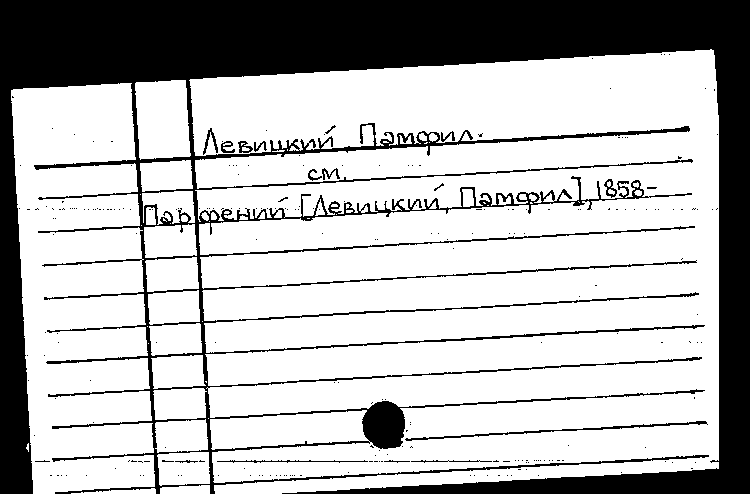 Левицкий, Памфил.
см.
Парфений [Левицкий, Памфил], 1858-